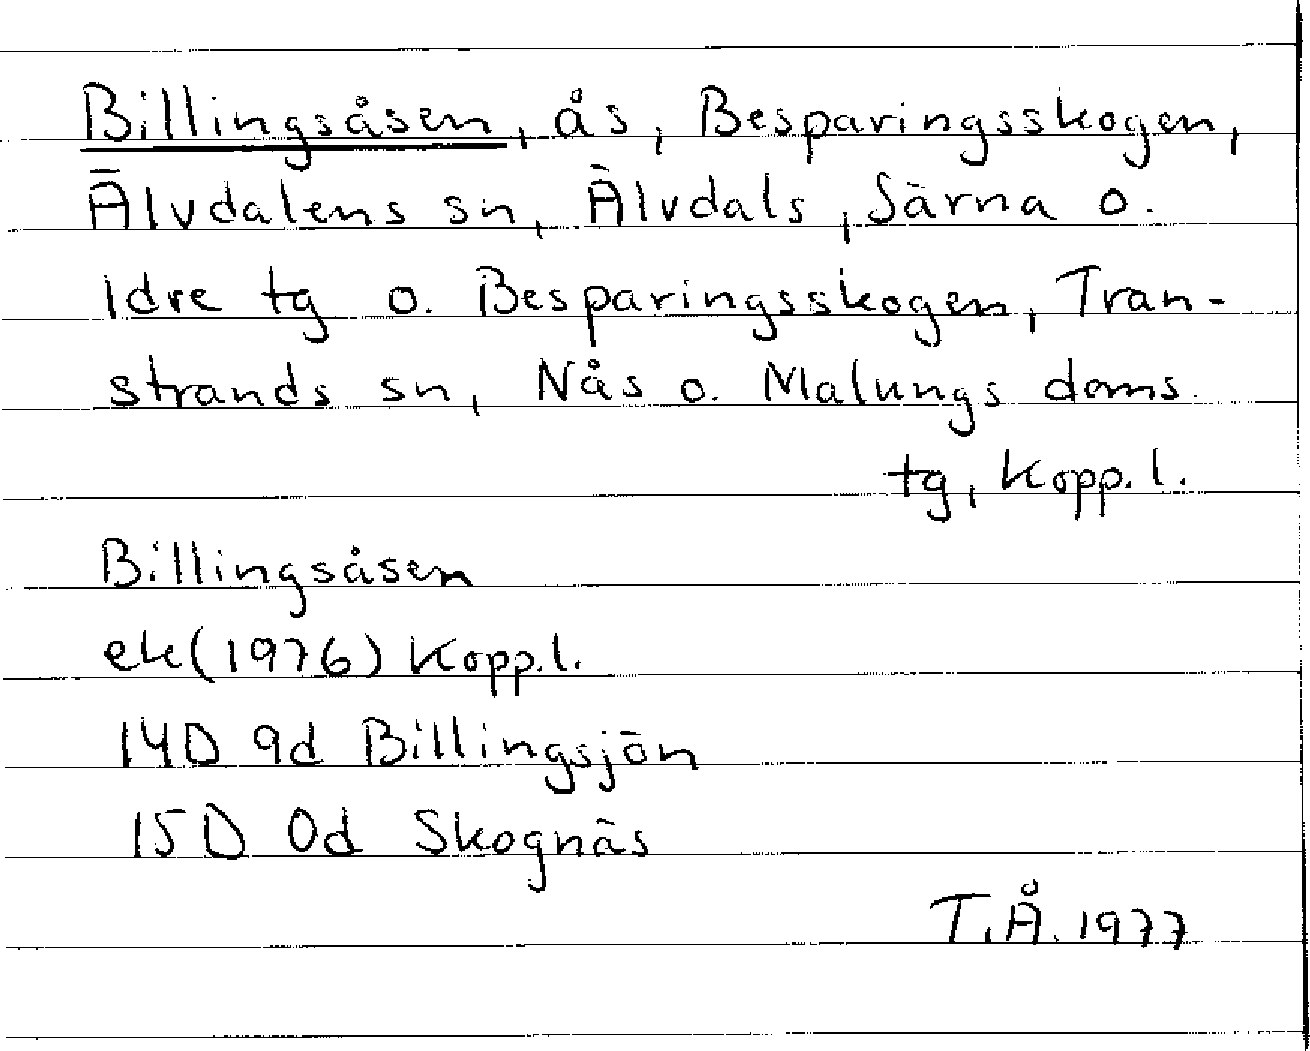 Billingsåsen, ås, Besparingsskogen,
Älvdalens sn, Älvdals, Särna o.
Idre tg o. Besparingsskogen, Tran-
strands sn, Nås o. Malungs doms.
tg, Kopp.l.
Billingsåsen
ek(1976) Kopp.l.
14D 9d Billingsjön
15D 0d Skognäs
T.Å. 1977